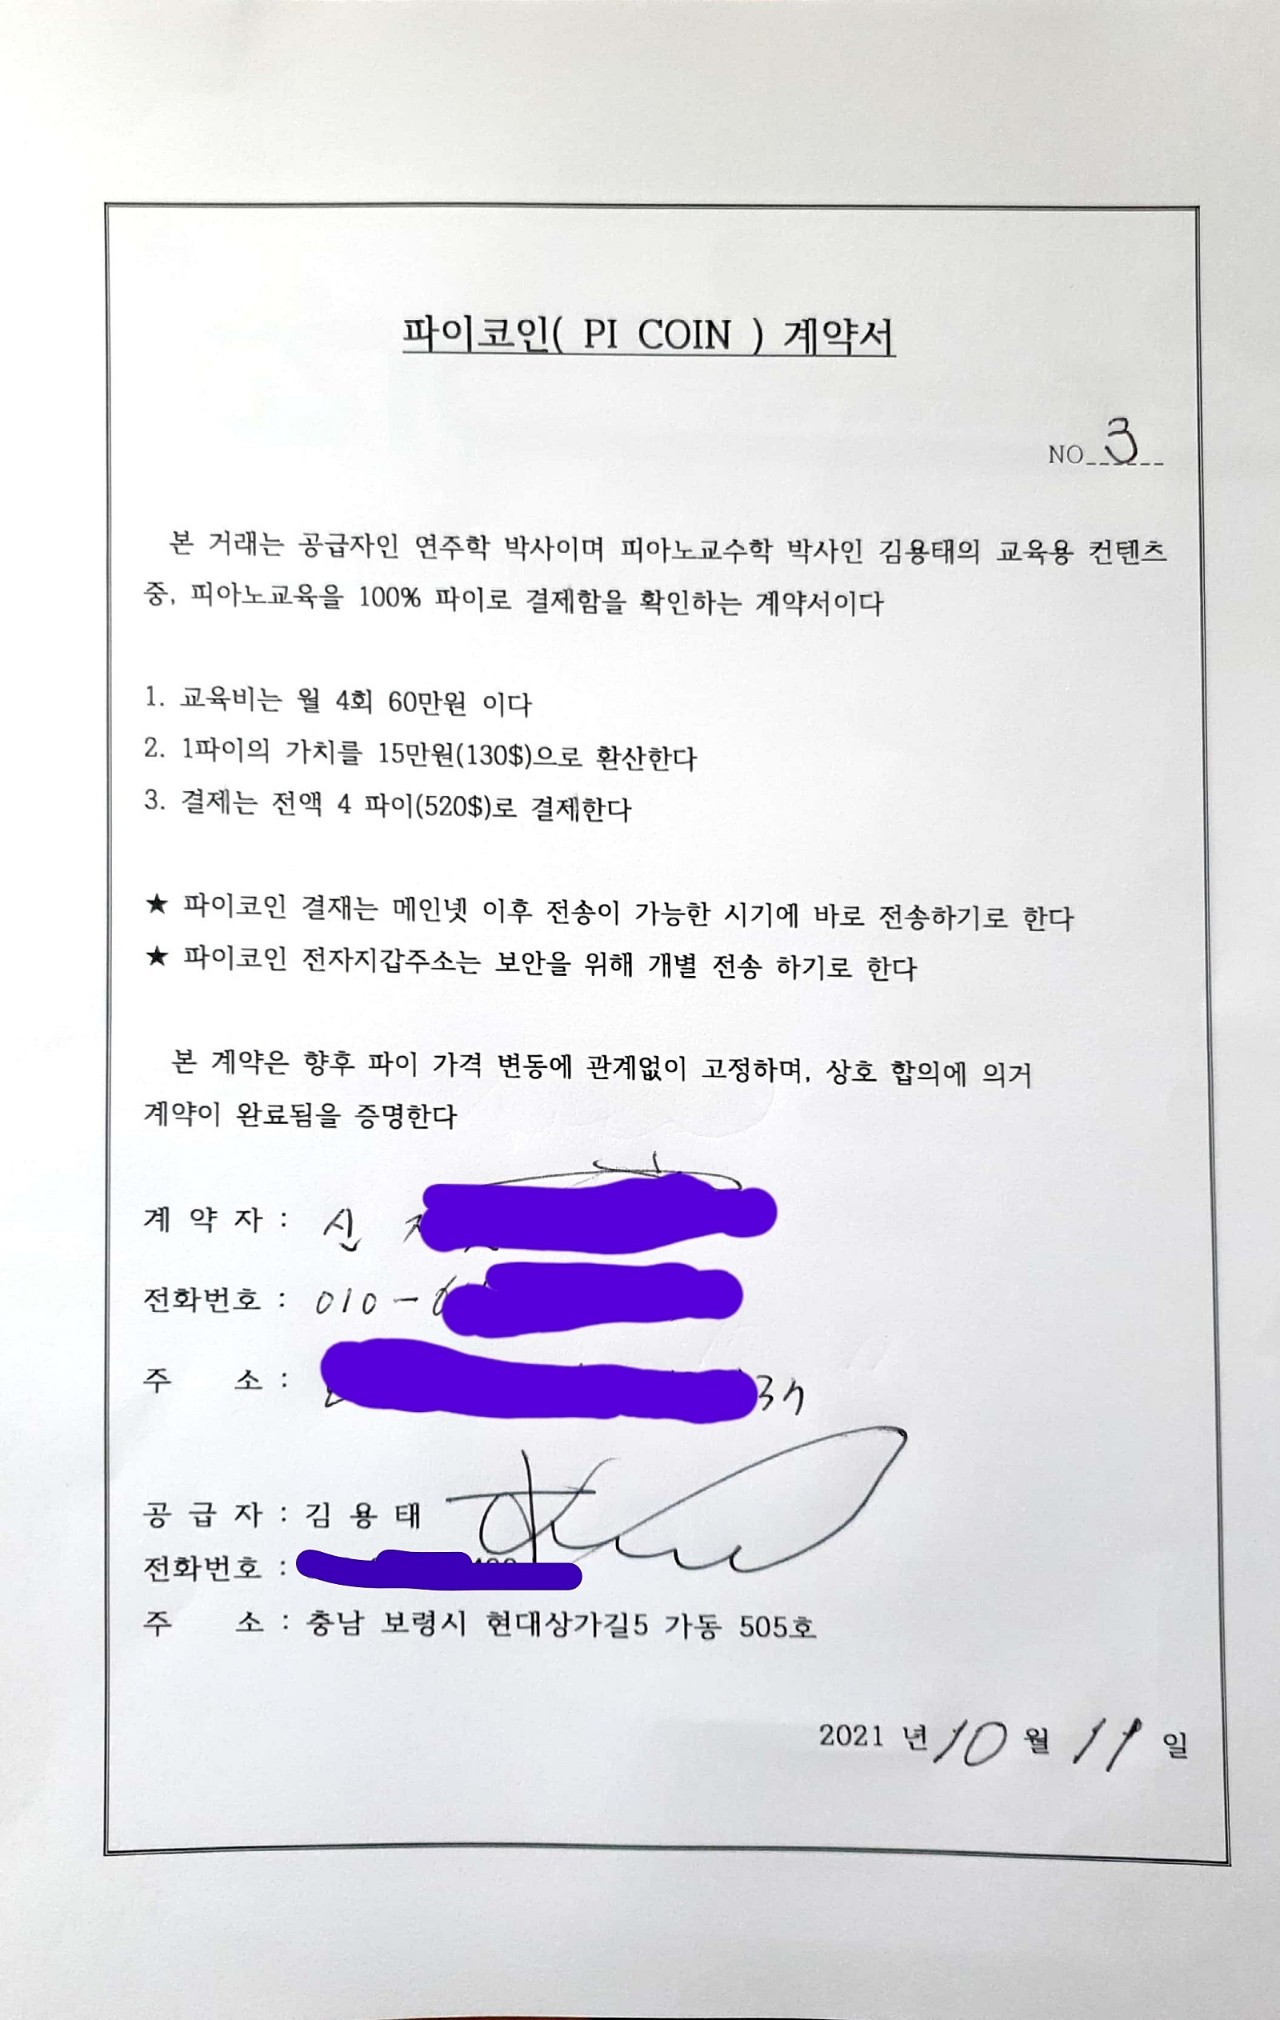 파이코인( PI COIN ) 계약서
NO 3
본 거래는 공급자인 연주학 박사이며 피아노교수학 박사인 김용태의 교육용 컨텐츠
중, 피아노교육을 100% 파이로 결제함을 확인하는 계약서이다
1. 교육비는 월 4회 60만원 이다
2. 1파이의 가치를 15만원(130$)으로 환산한다
3. 결제는 전액 4 파이(520$)로 결제한다
★ 파이코인 결재는 메인넷 이후 전송이 가능한 시기에 바로 전송하기로 한다
★ 파이코인 전자지갑주소는 보안을 위해 개별 전송 하기로 한다
본 계약은 향후 파이 가격 변동에 관계없이 고정하며, 상호 합의에 의거
계약이 완료됨을 증명한다
계 약 자 : 신
전화번호 : 010 -
주 소 :
공 급 자 : 김 용 태
전화번호 :
주 소 : 충남 보령시 현대상가길5 가동 505호
2021 년 10 월 11 일